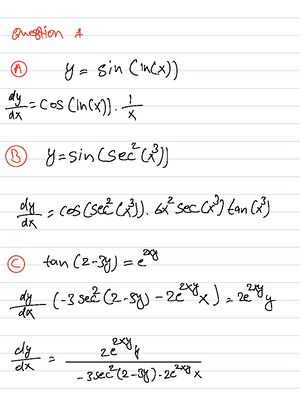 Question 1
A y = sin (ln(x))
dy/dx = cos (ln(x)) . 1/x
B y = sin (sec²(x³))
dy/dx = cos (sec²(x³)) . 6x² sec(x³) tan(x³)
C tan (2-3y) = e^2xy
dy/dx (-3 sec²(2-3y) - 2e^2xy x) = 2e^2xy y
dy/dx = 2e^2xy y / -3sec²(2-3y) - 2e^2xy x